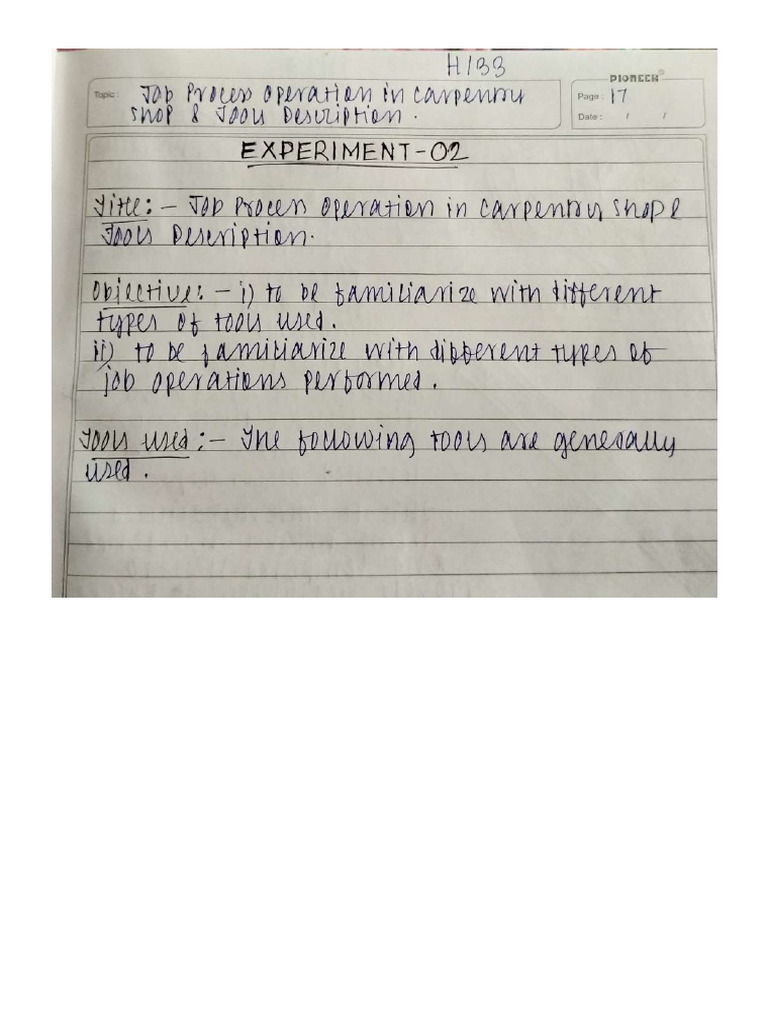 H133
PIONEER®
Topic : Job Process Operation in Carpentry
Shop & Tools Description.
Page : 17
Date : / /
EXPERIMENT-02
Title:- Job Process Operation in Carpentry Shop &
Tools Description.
Objective:- i) to be familiarize with different
types of tools used.
ii) to be familiarize with different types of
job operations performed.
Tools used:- The following tools are generally
used.